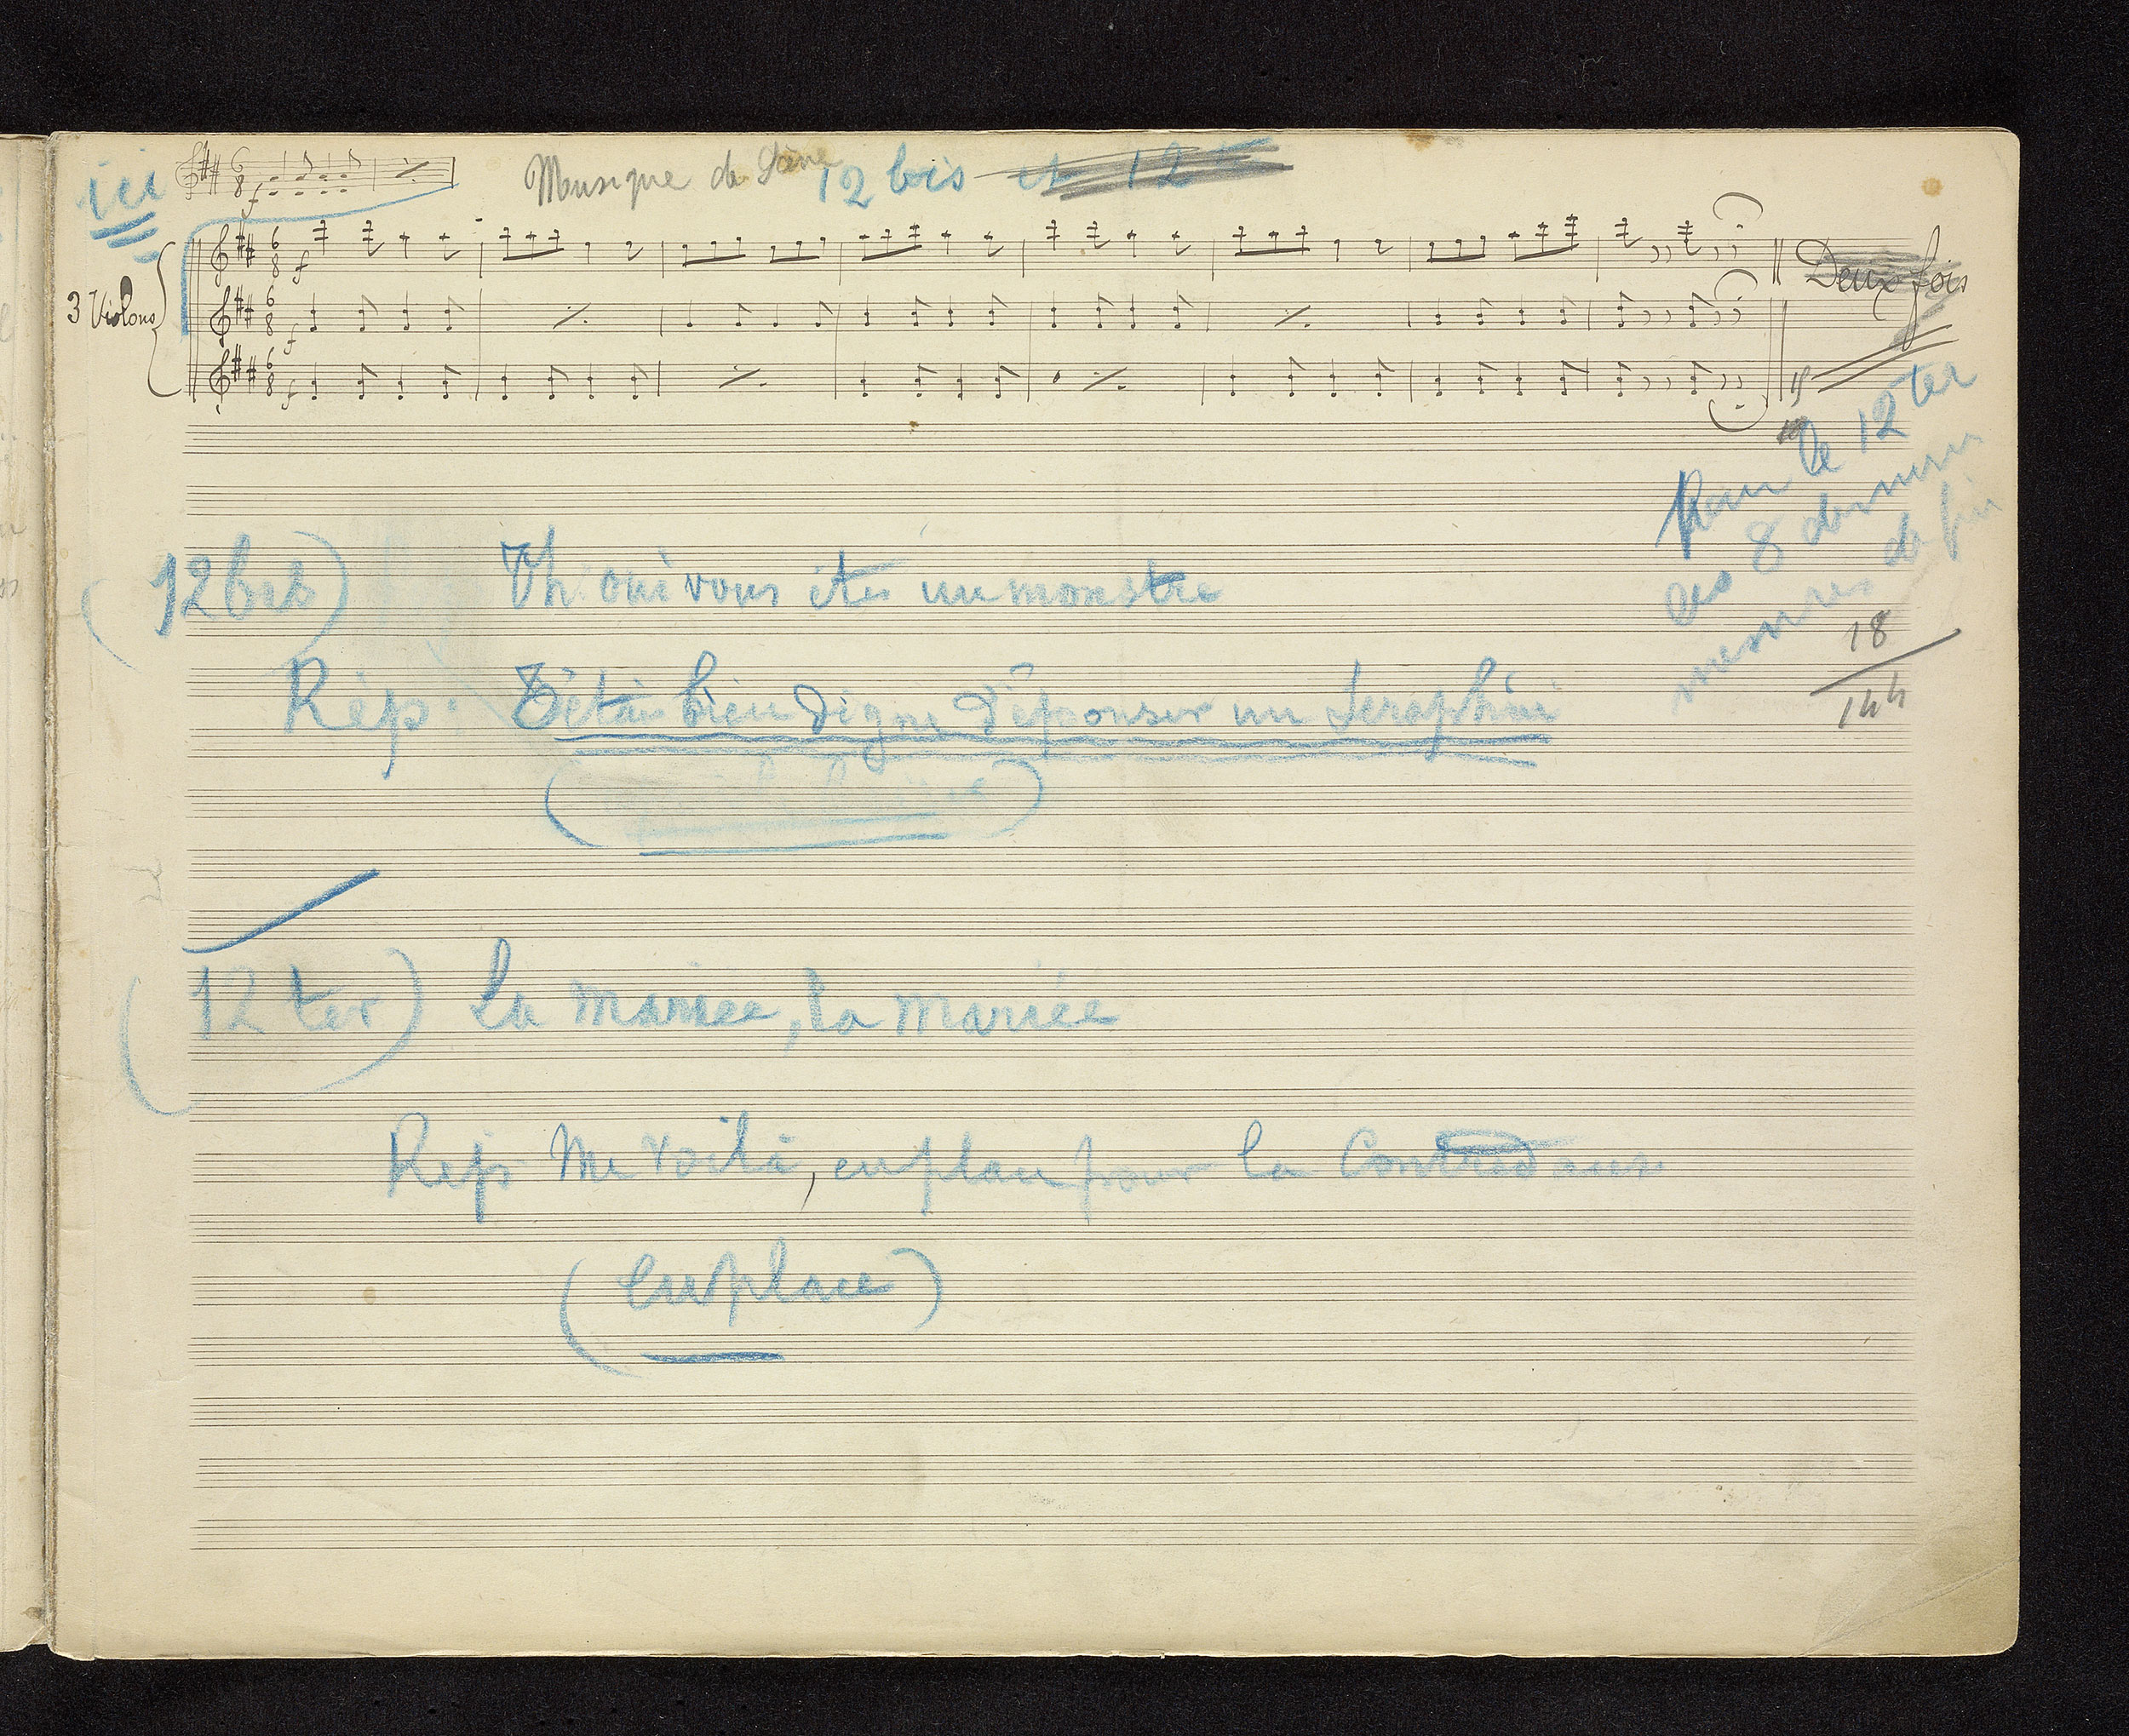 ici
Musique de Scène 12 bis et 12
3 Violons
Deux fois
Pour le 12 ter
les 8 dernieres
mesures de fin
18
144
(12 bis) Th. oui vous êtes un monstre
Rép. J'étais bien digne d'épouser un Seraphin
(12 ter) La mariee, la mariée
Rép Me voilà, en plan pour la Contredanse
(en place)